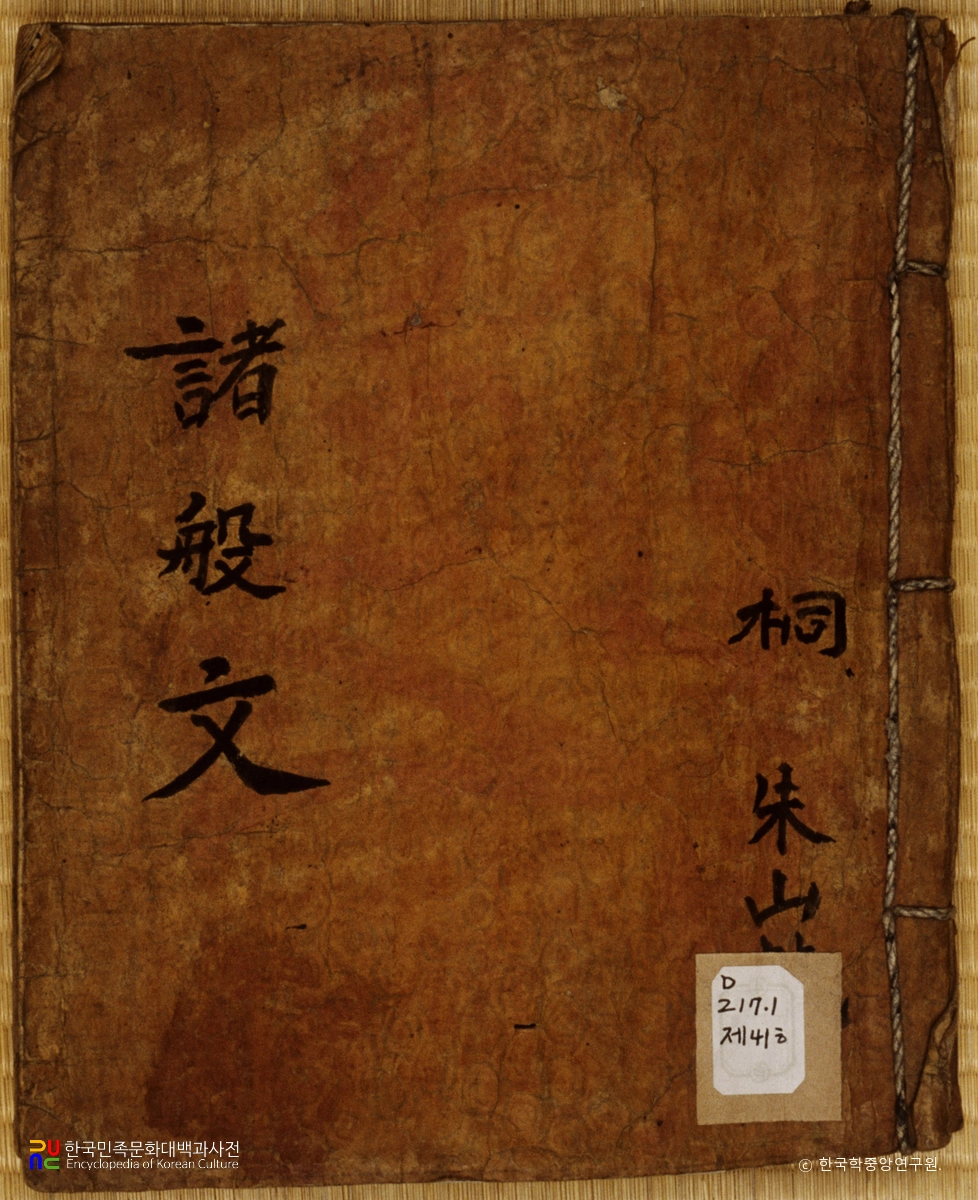 諸般文
桐
朱山
D
217.1
제41ㅎ
한국민족문화대백과사전
Encyclopedia of Korean Culture
© 한국학중앙연구원.